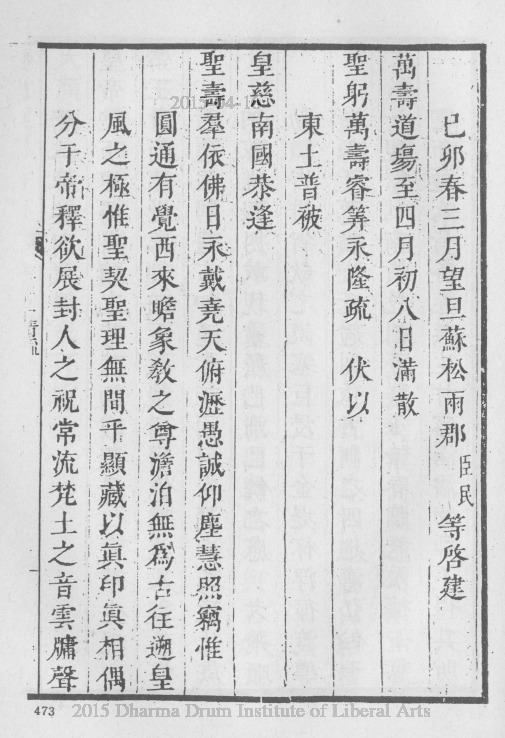 己卯春三月望旦蘇松兩郡臣民等啓建
萬壽道場至四月初八日滿散
聖躬萬壽睿筭永隆疏　伏以
東土普被
皇慈南國恭逢
聖壽羣依佛日永戴堯天俯瀝愚誠仰塵慧照竊惟
圓通有覺西來瞻象教之尊澹泊無為古往遡皇
風之極惟聖契聖理無間乎顯藏以眞印眞相偶
分于帝釋欲展封人之祝常流梵土之音雲牗聲
473
2015 Dharma Drum Institute of Liberal Arts